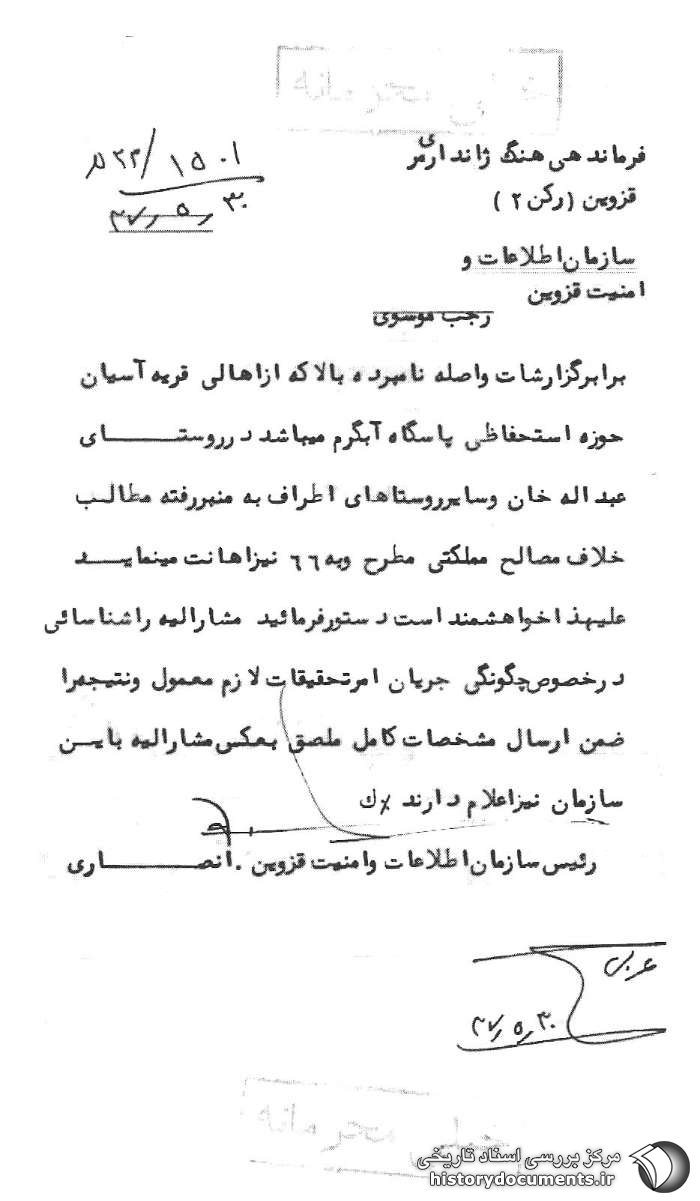 فرماندهی هنگ ژاندارمری
قزوین (رکن ۲)
۱۵۰۱/۲۳ه‍
۳۷/۵/۳۰
سازمان اطلاعات و
امنیت قزوین
رجب موسوی
برابر گزارشات واصله نامبرده بالا که از اهالی قریه آسیان
حوزه استحفاظی پاسگاه آبگرم میباشد در روستــــــای
عبداله خان و سایر روستاهای اطراف به منبر رفته مطالب
خلاف مصالح مملکتی مطرح و به ۶۶ نیز اهانت مینمایــد
علیهذا خواهشمند است دستور فرمائید مشارالیه را شناسائی
در خصوص چگونگی جریان امر تحقیقات لازم معمول و نتیجه را
ضمن ارسال مشخصات کامل ملصق بعکس مشارالیه باین
سازمان نیز اعلام دارند ٪ ك
رئیس سازمان اطلاعات و امنیت قزوین . انصــــــاری
۳۷/۵/۳۰
مرکز بررسی اسناد تاریخی
historydocuments.ir